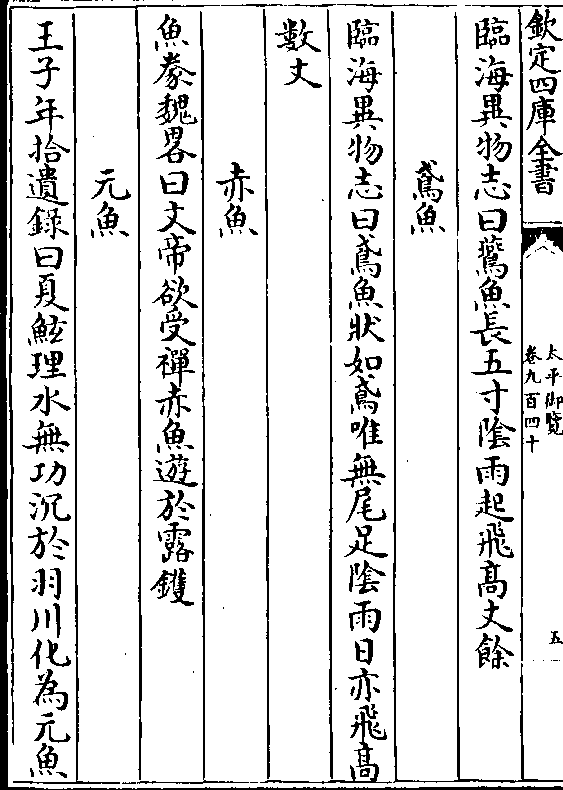 欽定四庫全書
太平御覽
卷九百四十
五
臨海異物志曰鷰魚長五寸隂雨起飛髙丈餘
鳶魚
臨海異物志曰鳶魚狀如鳶唯無尾足隂雨日亦飛髙
數丈
赤魚
魚豢魏畧曰文帝欲受禪赤魚遊於露鑊
元魚
王子年拾遺録曰夏鮌理水無功沉於羽川化為元魚